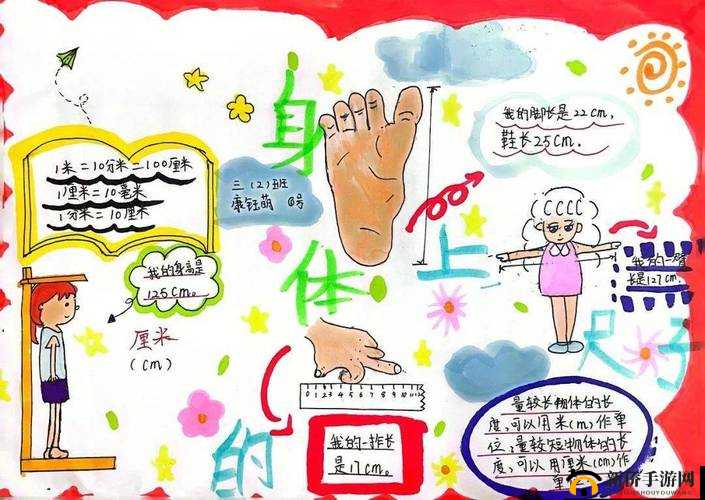 身
体
上
的
尺子
1米=10分米=100厘米
1厘米=10毫米
1分米=10厘米
三(2)班
康钰萌 号
我的脚长是22cm,
鞋长25cm.
我的身高是
125cm。
厘米
(cm)
我的一臂
长是127cm.
0 1 2 3 4 5 6 7 8 9 10 11
我的一拃长
是17cm。
量较长物体的长
度,可以用米(m)作单
位;量较短物体的长
度,可以用厘米(cm)作
单
新侨手游网